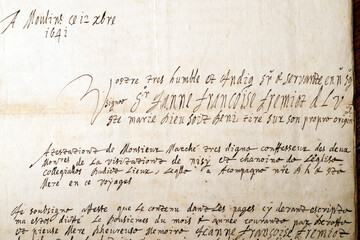 A Moulins ce 12 xbre
1641
Vostre tres humble et Indig sr et servante en n s
signé sr Janne françoise fremiot D L V
ste marie Dieu soit Beni tiré sur son propre origin
Atestation de Monsieur Marché tres digne conffesseur des deux
de la visitation de nisy et chanoine de Leglise
collegialle dudict Lieux, Leqlle l'a Acompagné
Mere en ce voyages
Je soubsigné atteste que le contenu dans les pages cy devant escriptes
ma estés dicté Le tresiesmes du mois et année courantes par
et pieuse Mere Bheureuse memoire Jeanne françoise fremiot